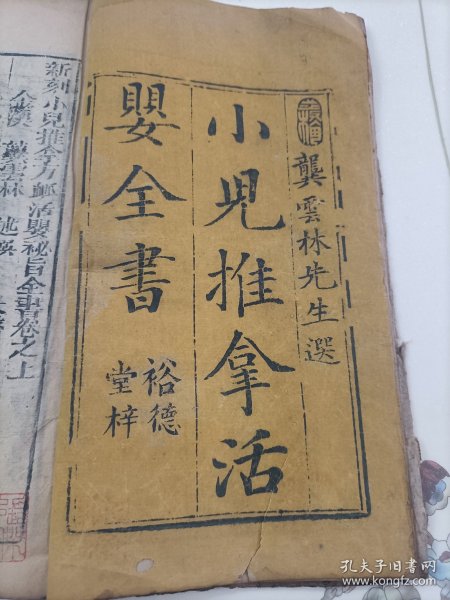 龔雲林先生選
小兒推拿活
嬰全書
裕德
堂梓
新刻小兒推拿方脈活嬰秘旨全書卷之上
金谿 龔雲林 述
孔夫子旧书网
www.kongfz.com